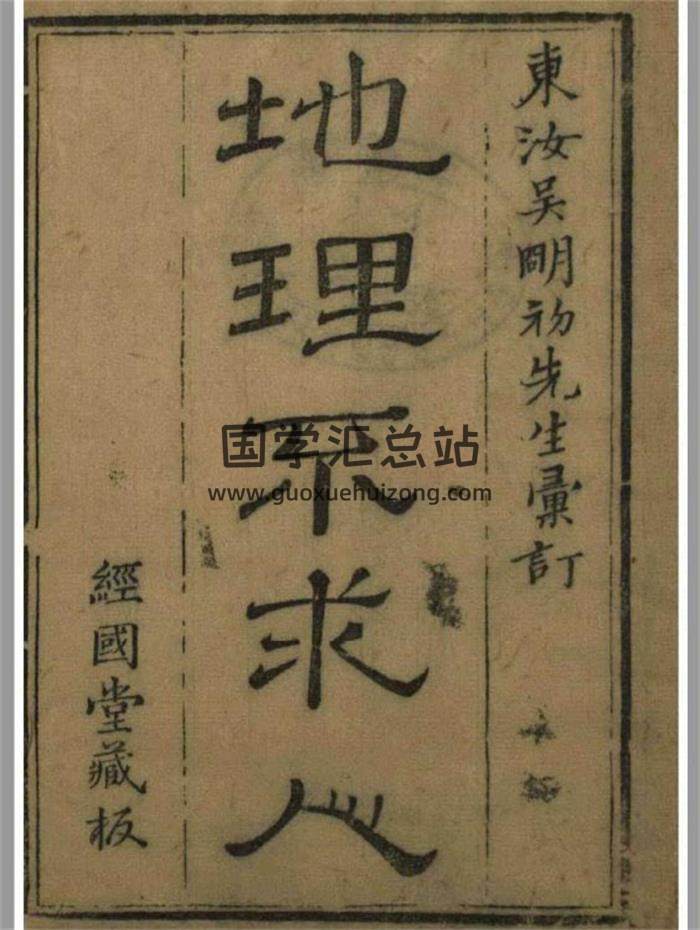 東汝吴明初先生彙訂
地理不求人
經國堂藏板
国学汇总站
www.guoxuehuizong.com